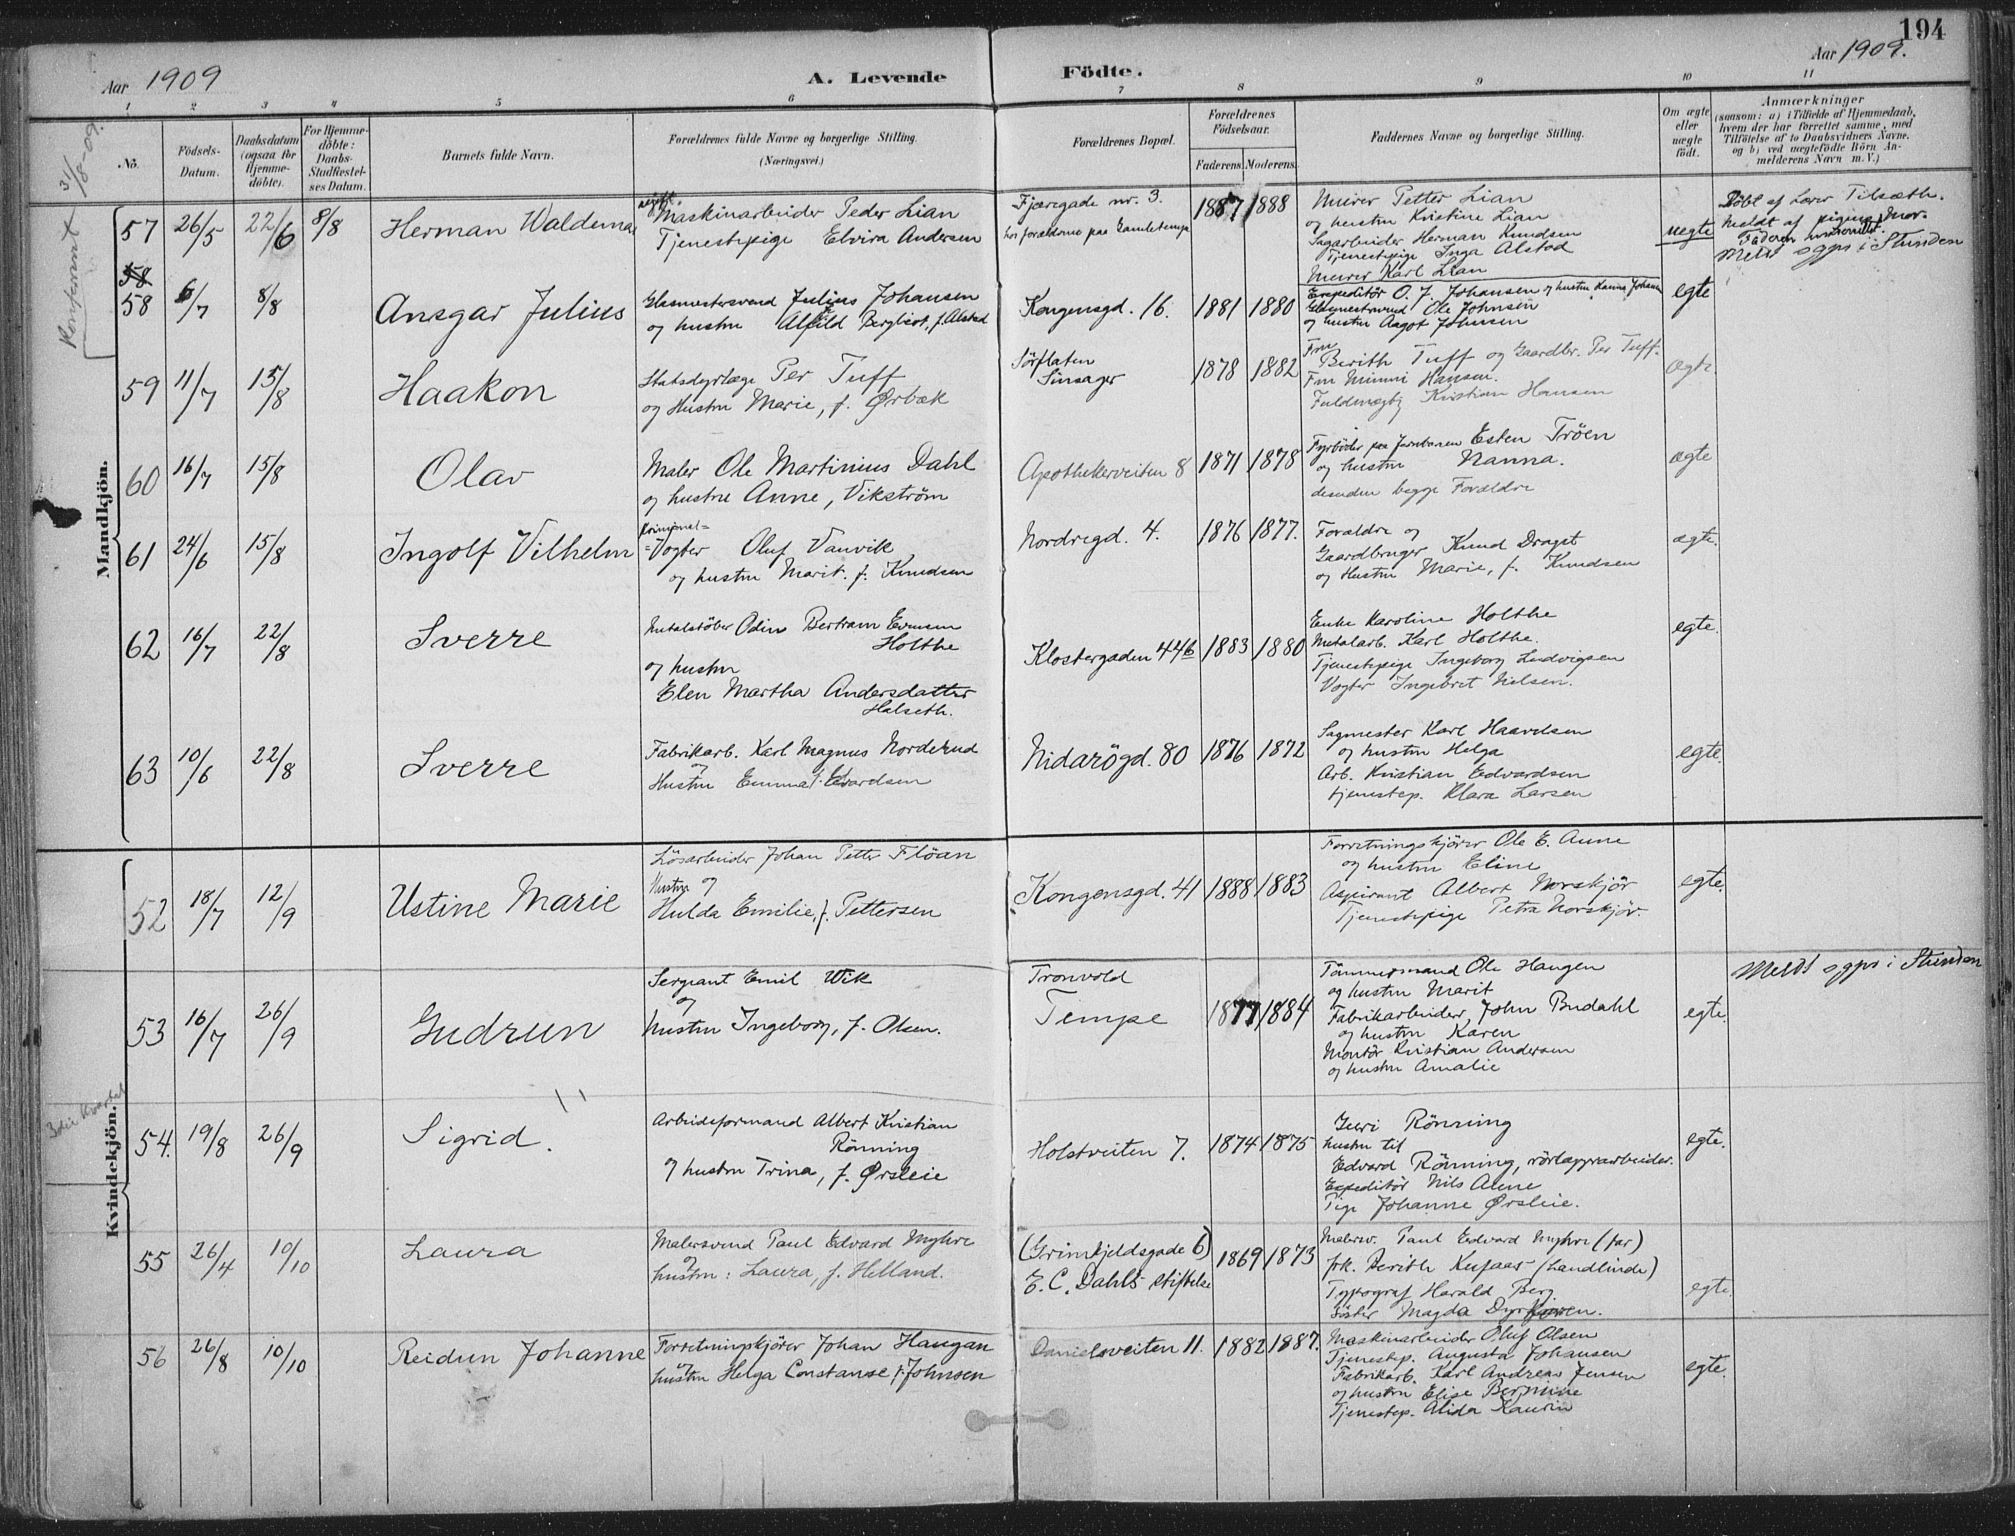 194
Aar 1909
A. Levende
Födte.
Aar 1909.
1 2 3 4 5 6 7 8 9 10 11
No.
Födsels-Datum.
Daabsdatum (ogsaa for Hjemme-döbte).
For Hjemme-döbte: Daabs-Stadfæstel-ses Datum.
Barnets fulde Navn.
Forældrenes fulde Navne og borgerlige Stilling.
(Næringsvei.)
Forældrenes Bopæl.
Forældrenes Födselsaar.
Faderens. Moderens.
Faddernes Navne og borgerlige Stilling.
Om ægte eller uægte födt.
Anmærkninger
(saasom: a) i Tilfælde af Hjemmedaab, hvem der har forrettet samme, med Tilföielse af to Daabsvidners Navne. og b) ved uægtefödte Börn An-melderens Navn m. V.)
Konfereret 31/8-09.
Mandkjön.
57 26/5 22/6 8/8 Herman Waldemar
ugift. Maskinarbeider Peder Lian
Tjenestepige Elvira Andersen
Fjæregade nr. 3.
hos forældrene paa Gamletempe
1887 1888
Murer Petter Lian
og hustru Kristine Lian
Sagarbeider Herman Knudsen
Tjenestepige Inga Alstad
Murer Karl Lian
uegte
Döbt af Lærer Tilsæth.
Meldt af pigens Mor.
Meldt sgps i Stunden
58
58 6/7 8/8 Ansgar Julius
Glasmestersvend Julius Johansen
og hustru Alfild Bergliot, f. Alstad
Kongensgd. 16. 1881 1880
Expeditör O. J. Johansen og hustru Hanna Johansen
Glasmestersvend Ole Johnsen
og hustru Aagot Johnsen
egte
59 11/7 15/8 Haakon
Statsdyrlæge Per Tuff
og Hustru Marie, f. Ørbæk
Sörflaten
Sinsager
1878 1882
Fru Berith Tuff og Gaardbr. Per Tuff.
Fru Mimmi Hansen.
Fuldmægtig Kristian Hansen
ægte
60 16/7 15/8 Olav
Maler Ole Martinius Dahl
og hustru Anne, Vikström
Apothekerveiten 8 1871 1878
Fyrböder paa Jernbanen Esten Tröen
og hustru Nanna.
desuden begge Forældre
ægte
61 24/6 15/8 Ingolf Vilhelm
Kriminal=
=Vogter Oluf Vanvik
og hustru Marit. f. Knudsen
Nordregd. 4. 1876 1877.
Forældre og
Gaardbruger Knud Draget
og Hustru Marie, f. Knudsen
ægte.
62 16/7 22/8 Sverre
Metalstöber Odin Bertram Evensen
Holthe
og hustru
Elen Martha Andersdatter
Halseth.
Klostergaden 44b 1883 1880
Enke Karoline Holthe
Metalarb. Karl Holthe.
Tjenestepige Ingeborg Ludvigsen
Vogter Ingebret Nielsen.
egte.
63 10/6 22/8 Sverre
Fabrikarb. Karl Magnus Norderud
og
Hustru Emma f. Edvardsen
Nidarögd. 80 1876 1872
Sagmester Karl Haavelsen
og hustru Helga
Arb. Kristian Edvardsen
tjenestep. Klara Larsen
egte.
Kvindekjön.
3die Kvartal
52 18/7 12/9 Ustine Marie
Lösarbeider Johan Petter Flöan
Hustru og
Hulda Emilie, f. Pettersen
Kongensgd. 41 1888 1883
Forretningskjörer Ole E. Aune
og hustru Eline
Aspirant Albert Norskjör
Tjenestepige Petra Norskjör.
egte.
53 16/7 26/9 Gudrun
Sergeant Emil Wik
og
hustru Ingeborg, f. Olsen.
Tronvold
Tempe
1877 1884
Tömmermand Ole Haugen
og hustru Marit
Fabrikarbeider John Budahl
og hustru Karen
Montör Kristian Andersen
og hustru Amalie
egte.
Meldt sgps i Stunden
54. 19/8 26/9 Sigrid.
Arbeidsformand Albert Kristian
Rönning
og hustru Trina, f. Ørsleie
Holstveiten 7. 1874 1875
Guri Rönning
hustru til
Edvard Rönning, rörlæggerarbeider.
Expeditör Nils Aune
Pige Johanne Ørsleie.
egte.
55 26/4 10/10 Laura
Malersvend Paul Edvard Myhre
og
hustru: Laura, f. Helland.
(Grimkjeldsgade 6)
E. C. Dahls Stiftelse
1869 1873
Malersv. Paul Edvard Myhre (far)
frk. Berith Kufaas (Landlinde)
Typograf Harald Berg
Söster Magda Dyrhaven.
egte.
56 26/8 10/10 Reidun Johanne
Forretningskjörer Johan Haugan
og
hustru Helga Constanse f. Johnsen
Danielsveiten 11. 1882 1887.
Maskinarbeider Oluf Olsen
Tjenestep. Augusta Johansen
Fabrikarb. Karl Andreas Jensen
og hustru Elise Bermine
Tjenestep. Alida Kaurin
egte.